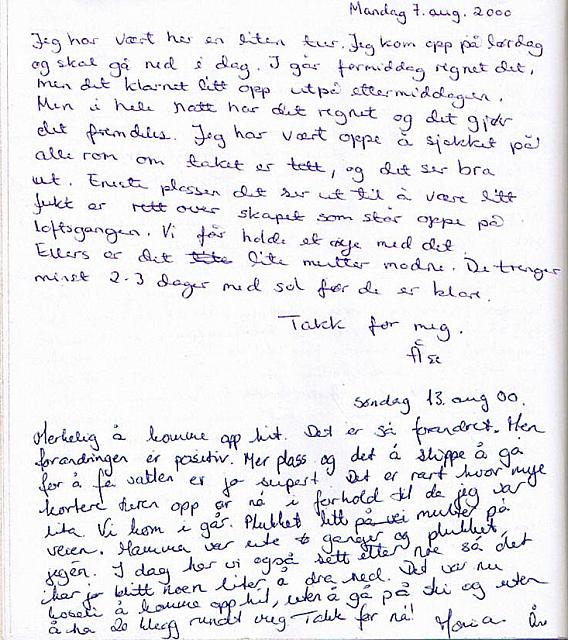 Mandag 7. aug. 2000
Jeg har vært her en liten tur. Jeg kom opp på lørdag
og skal gå ned i dag. I går formiddag regnet det,
men det klarnet litt opp utpå ettermiddagen.
Men i hele natt har det regnet og det gjør
det fremdeles. Jeg har vært oppe å sjekket på
alle rom om taket er tett, og det ser bra
ut. Eneste plassen det ser ut til å være litt
fukt er rett over skapet som står oppe på
loftsgangen. Vi får holde et øye med det.
Ellers er det lite multer modne. De trenger
minst 2-3 dager med sol før de er klare.
Takk for meg.
Åse
søndag 13. aug 00.
Merkelig å komme opp hit. Det er så forandret. Men
forandringen er positiv. Mer plass og det å slippe å gå
for å få vatten er jo supert. Det er rart hvor mye
kortere turen opp er nå i forhold til da jeg var
lita. Vi kom i går. Plukket litt multer på
veien. Mamma var ute ganger og plukket,
igjen. I dag har vi også sett etter noe så det
har jo blitt noen liter å dra ned. Det var nu
koselig å komme opp hit, uten å gå på ski og uten
å ha 20 klegg rundt meg Takk for nå! Maria